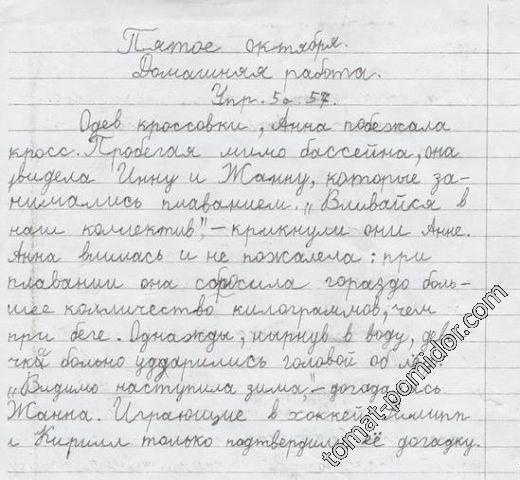 Пятое октября.
Домашняя работа.
Упр. 5 с. 57.
Одев кроссовки, Анна побежала
кросс. Пробегая мимо бассейна, она
увидела Инну и Жанну, которые за-
нимались плаванием. „Вливайся в
наш коллектив", – крикнули они Анне.
Анна влилась и не пожалела: при
плавании она сбросила гораздо боль-
шее количество килограммов, чем
при беге. Однажды, нырнув в воду,
больно ударились головой об
„Видимо наступила зима", –
Жанна. Играющие в хоккей
и Кирилл только подтвердили её догадку.
tomat-pomidor.com